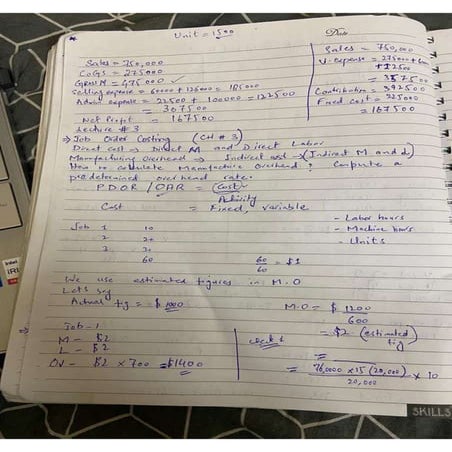 Unit = 1500
Date
Sales = 750,000
COGS = 275000
Gross M = 475000
Selling expense = 60000 + 125000 = 185000
Admin expense = 22500 + 100000 = 122500
= 307500
Net Profit = 167500
Sales = 750,000
V. expense = 275000 +
= 357500
Contribution = 392500
Fixed cost = 225000
= 167500
Lecture # 3
Job Order Costing (CH # 3)
Direct cost → Direct M and Direct Labor
Manufacturing Overhead → Indirect cost → (Indirect M and L)
How to calculate Manufacture Overhead? Compute a
predetermined overhead rate.
PDOR / OAR = Cost
Activity
Cost = Fixed, variable
- Labor hours
- Machine hours
- Units
Job 1 10
2 20
3 30
60
60/60 = $1
We use estimated figures in M.O
Lets say
Actual fig = $ 1000
M.O = $ 1200
600
= $2 (estimated fig)
Job - 1
M - $2
L - $2
OV - $2 × 700 = $1400
=
20,000
× 10
SKILLS